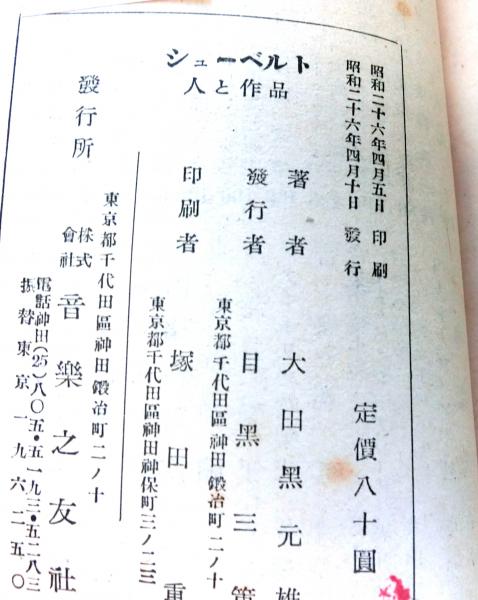 シューベルト
人と作品
昭和二十六年四月五日 印刷
昭和二十六年四月十日 發行
定價八十圓
著者 大田黑元雄
發行者 目黑三策
東京都千代田區神田鍛治町二ノ十
印刷者 塚田重
東京都千代田區神田神保町三ノ二三
發行所
東京都千代田區神田鍛治町二ノ十
株式會社 音樂之友社
電話神田(25)八〇五・五一九三・五二八三
振替東京一九六二五〇